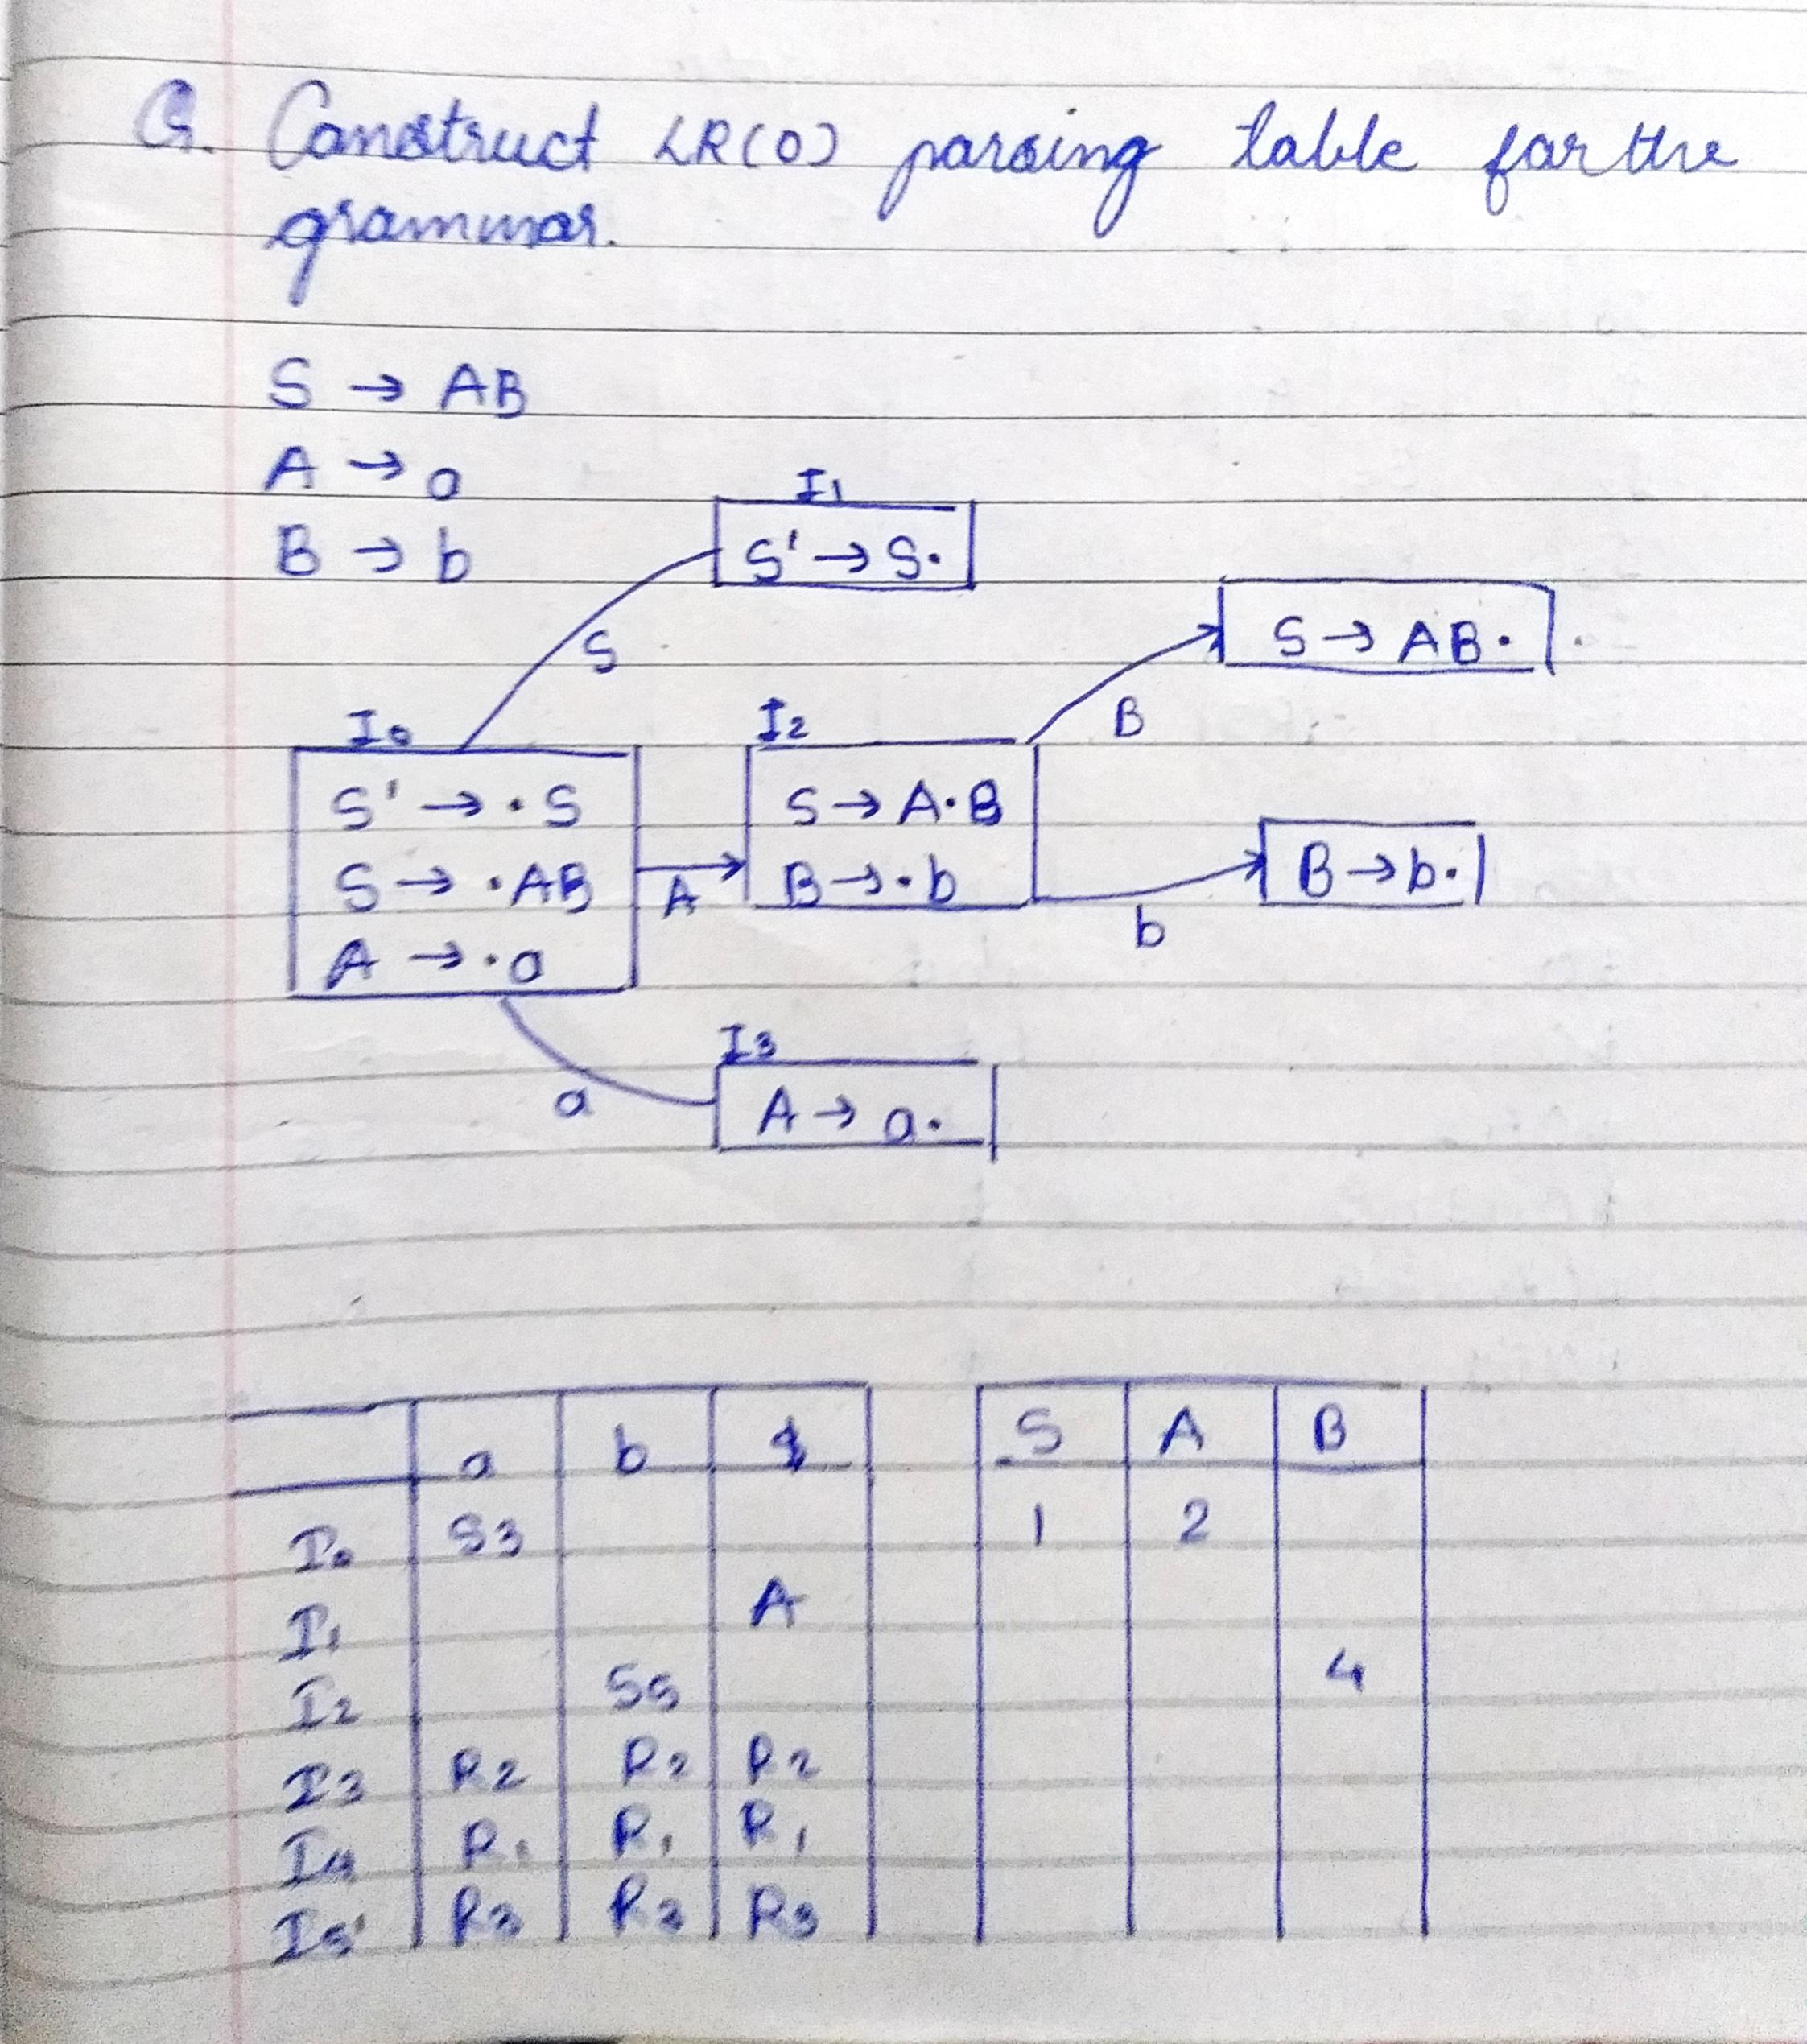 Q. Construct LR(0) parsing table for the
grammar.
S → AB
A → a
B → b
I1
S' → S.
S
S → AB.
B
I0
S' → .S
S → .AB
A → .a
A
I2
S → A.B
B → .b
B → b.
b
a
I3
A → a.
a b $ S A B
I0 S3 1 2
I1 A
I2 S5 4
I3 R2 R2 R2
I4 R1 R1 R1
I5 R3 R3 R3